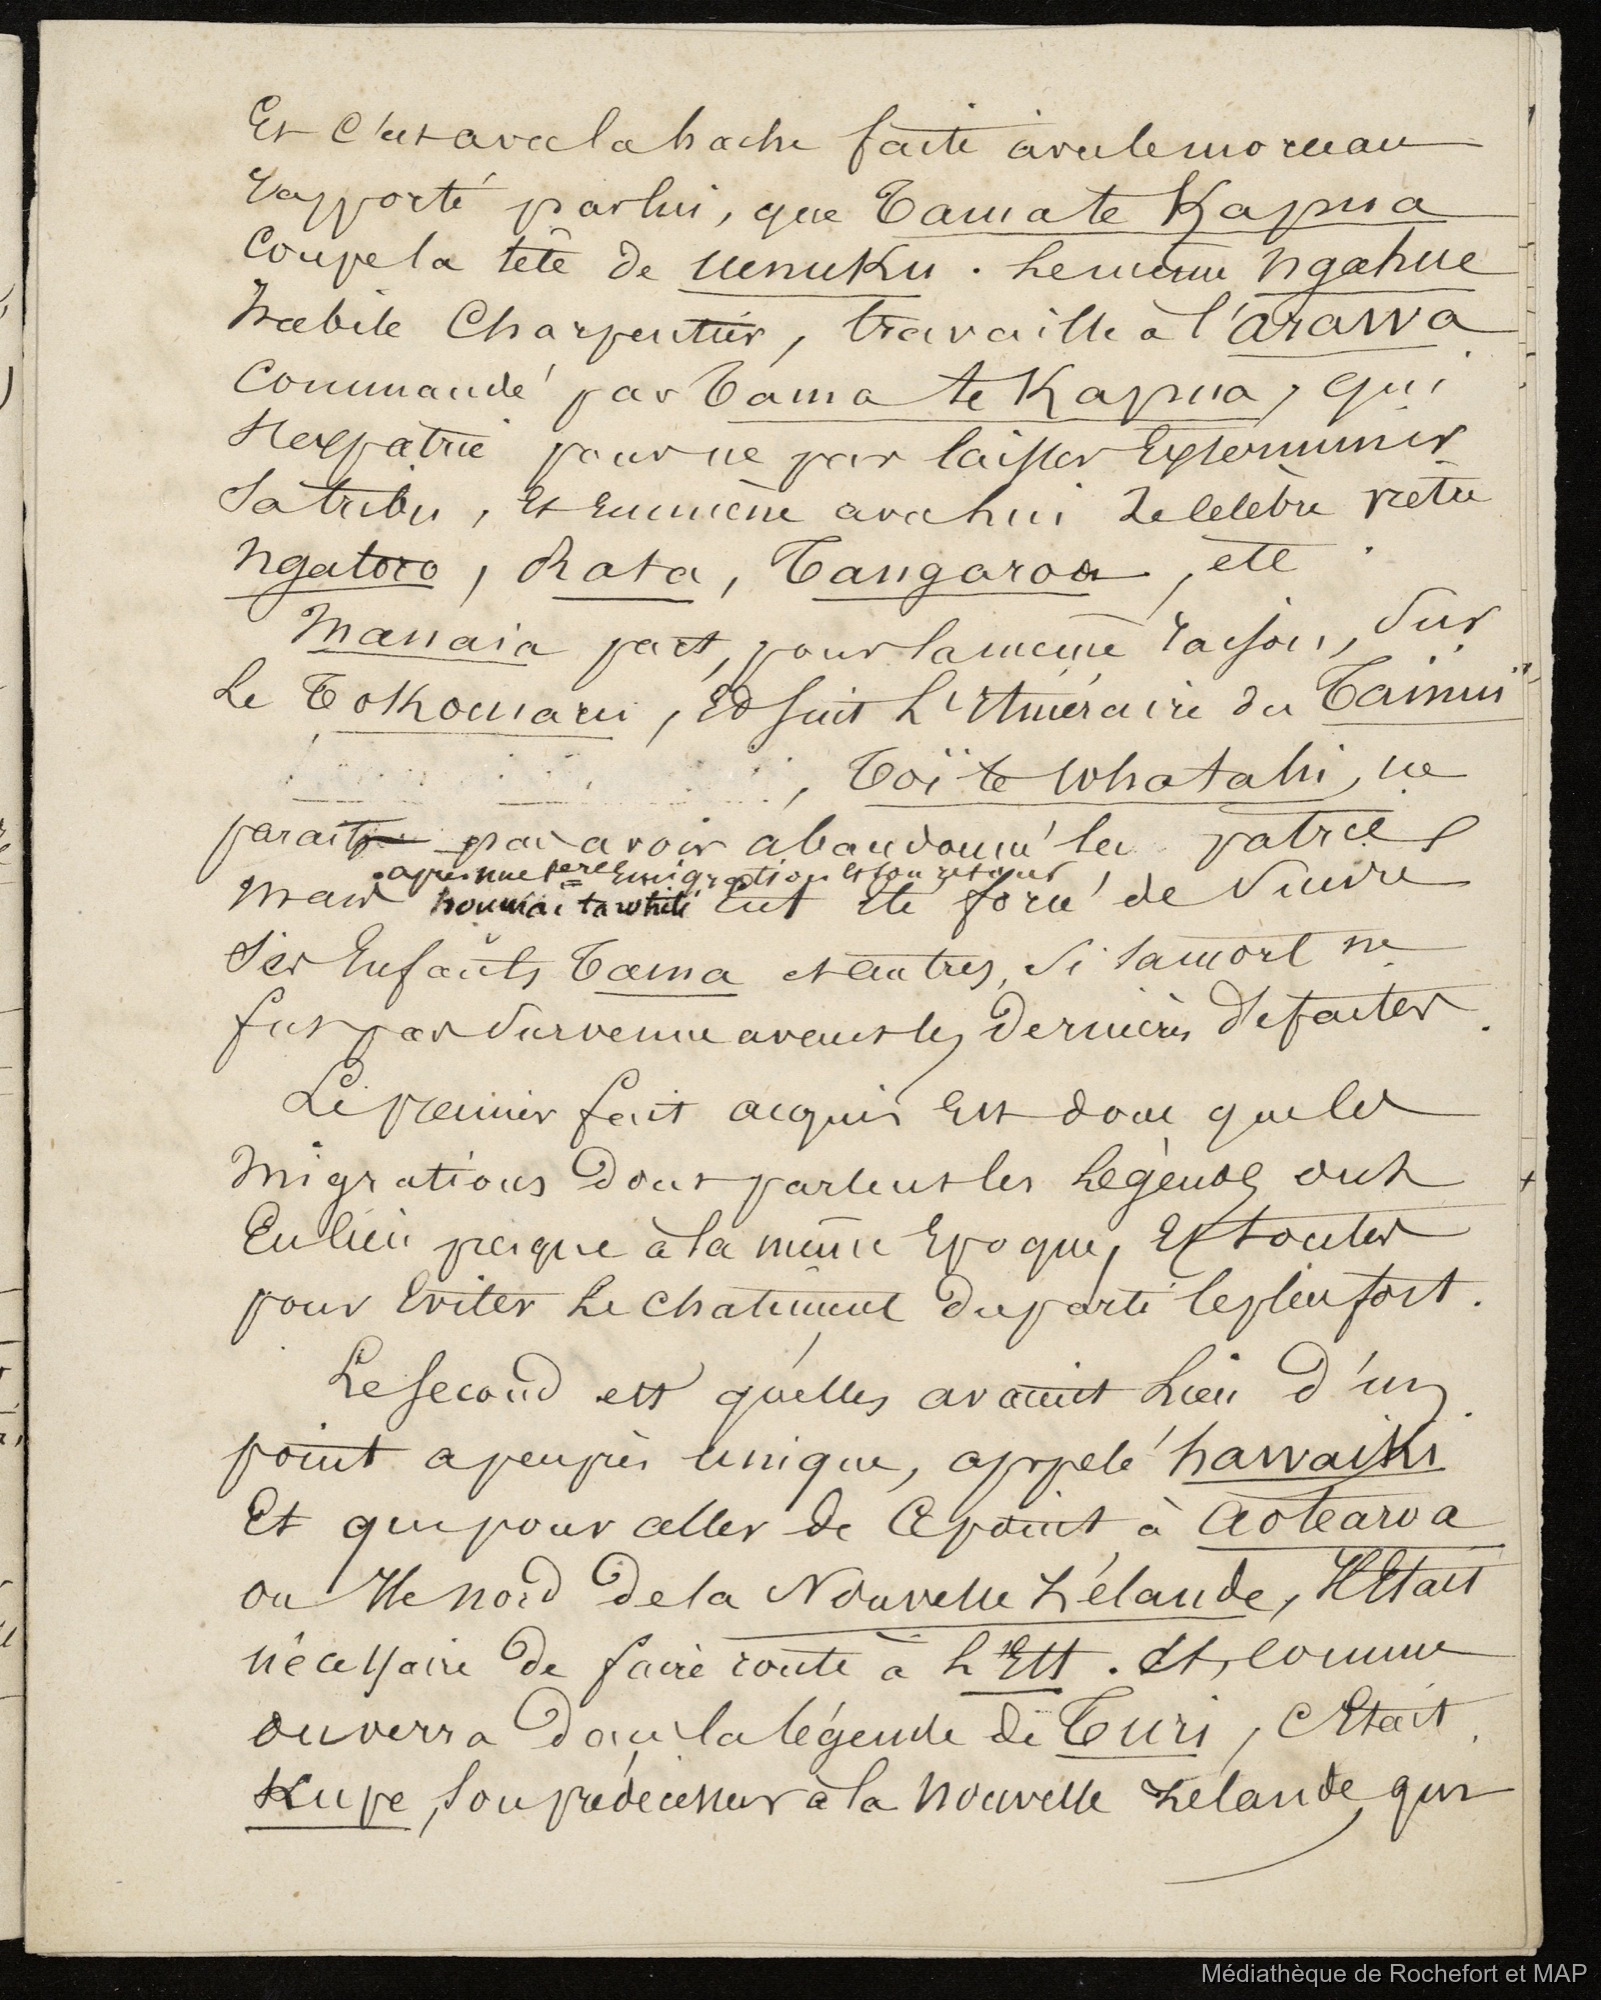 Et c'est avec la hache faite avec le morceau
rapporté par lui, que Tama te Kapua
coupe la tête de uenuku. Le même ngahue
habile charpentier, travaille à l'arawa
commandé par Tama te Kapua, qui
s'expatrie pour ne pas laisser exterminer
sa tribu, et emmène avec lui le célèbre prêtre
ngatoro, Rata, Tangaroa, etc.
Manaia part, pour la même raison, sur
le Tokomaru, et suit l'itinéraire du Tainui
, Toï te whatahi, ne
parait pas avoir abandonné la patrie
après une 1ere Emigration et son retour
mais houmai tawhiti eut été forcé de suivre
ses Enfants Tama et autres, si la mort ne
fut pas survenue avant les dernières défaites.
Le premier fait acquis est donc que les
migrations dont parlent les légendes ont
eu lieu presque à la même époque, et toutes
pour éviter le chatiment du parti le plus fort.
Le second est qu'elles avaient lieu d'un
point a peu près unique, appelé hawaiki
Et que pour aller de ce point à aotearoa
ou Ile nord de la Nouvelle Zélande, il était
nécessaire de faire route à l'Est. Et, comme
on verra dans la légende de Turi, c'était
Kupe, son prédécesseur à la nouvelle Zélande, qui
Médiathèque de Rochefort et MAP